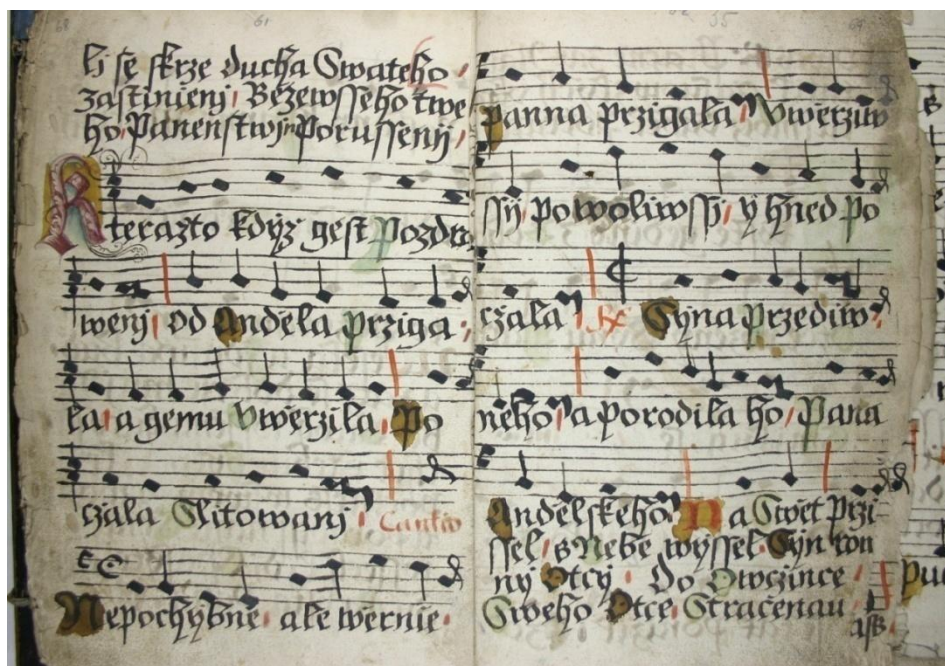 68 61
li se skrze ducha Swateho
zastinieni, Bezewsseho twe
ho, Panenstwij Porussenij,
Kterazto kdyz gest Pozdra
weni, od Andela prziga
la, a gemu Vwerzila, Po
czala Slitowani
Nepochybnie, ale wernie
55 69
panna przigala, Vwerziw
ssy, powoliwssy, y hned po
czala, Syna przediw
neho, a porodila ho, Pana
Andelskeho, Na Swet przi
ssel, s Nebe wyssel, Syn
ny Otcy, Do Owczince
Sweho Otce, Straczenau